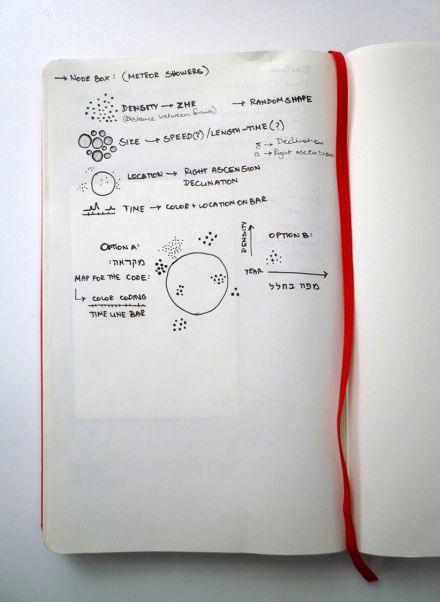 → NODE BOX: (METEOR SHOWERS)
DENSITY → ZHR → RANDOM SHAPE
(Distance between forms)
SIZE → SPEED(?)/LENGTH-TIME(?)
δ → Declination
α → Right ascension
LOCATION → RIGHT ASCENSION
DECLINATION
TIME → COLOR + LOCATION ON BAR
OPTION A:
מקראה:
MAP FOR THE CODE:
COLOR CODING
TIME LINE BAR
OPTION B:
DENSITY
YEAR
מפה בחלל